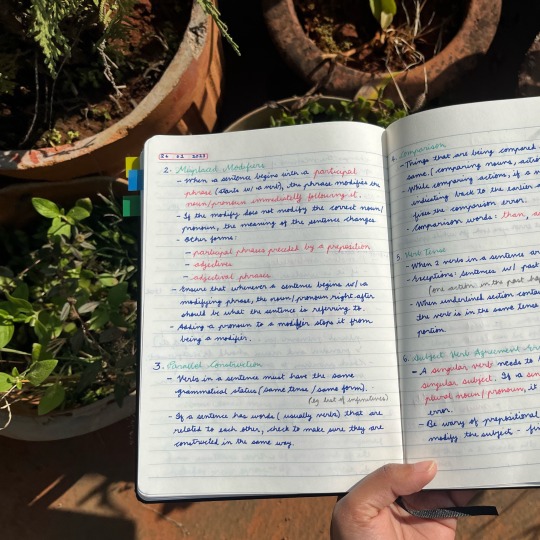 24 02 2023
2. Misplaced Modifiers
- When a sentence begins with a participal
phrase (starts w/ a verb), the phrase modifies the
noun/pronoun immediately following it.
- If the modify does not modify the correct noun/
pronoun, the meaning of the sentence changes.
- Other forms:
- participal phrases preceded by a preposition
- adjectives
- adjectival phrases
- Ensure that whenever a sentence begins w/ a
modifying phrase, the noun/pronoun right after
should be what the sentence is referring to.
- Adding a pronoun to a modifier stops it from
being a modifier.
3. Parallel Construction
- Verbs in a sentence must have the same
grammatical status (same tense / same form).
(eg. list of infinitives)
- If a sentence has words (usually verbs) that are
related to each other, check to make sure they are
constructed in the same way.
4. Comparison
- Things that are being compared
same. (comparing nouns, action
- While comparing actions, if a
indicating back to the earlier
fixes the comparison error.
- Comparison words: than, as
5. Verb Tense
- When 2 verbs in a sentence are
- Exceptions: sentences w/ past
(one action in the past hap
- When underlined action conta
the verb is in the same tense
portion.
6. Subject Verb Agreement Err
- A singular verb needs to
singular subject. If a sin
plural noun/pronoun, it
error.
- Be wary of prepositional
modify the subject -